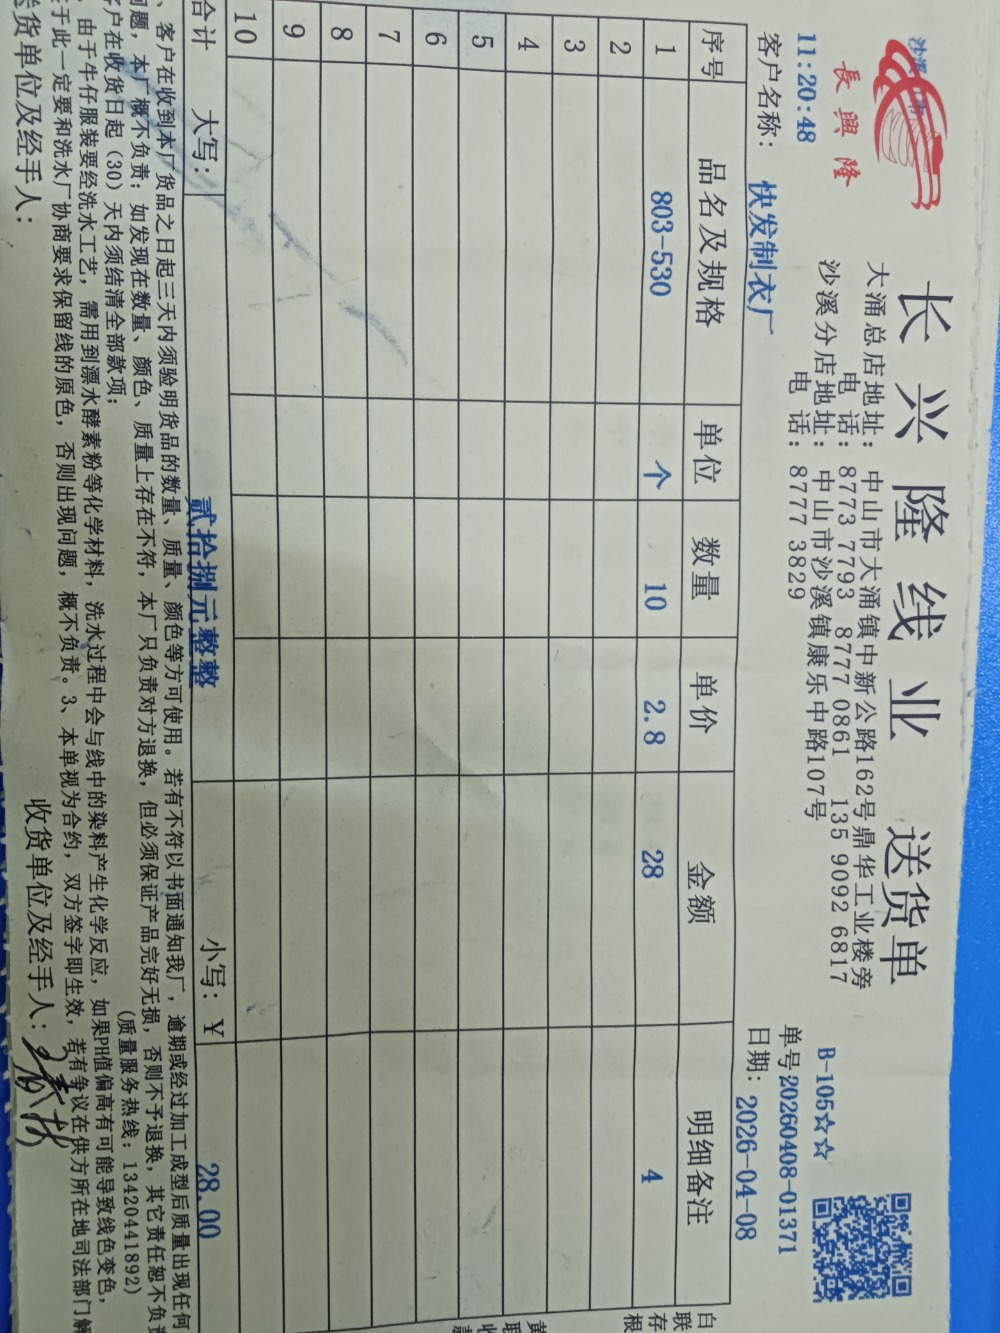 長興隆
长兴隆线业 送货单
大涌总店地址：中山市大涌镇中新公路162号鼎华工业楼旁
电话：8773 7793 8777 0861 135 9092 6817
沙溪分店地址：中山市沙溪镇康乐中路107号
电话：8777 3829
B-105☆☆
单号20260408-01371
11:20:48
客户名称：快发制衣厂
日期：2026-04-08
序号 品名及规格 单位 数量 单价 金额 明细备注
1 803-530 个 10 2.8 28 4
2
3
4
5
6
7
8
9
10
合计 大写：贰拾捌元整整 小写：¥ 28.00
、客户在收到本厂货品之日起三天内须验明货品的数量、质量、颜色等方可使用。若有不符以书面通知我厂，逾期或经过加工成型后质量出现任何
问题，本厂概不负责；如发现在数量、颜色、质量上存在不符，本厂只负责对方退换，但必须保证产品完好无损，否则不予退换，其它责任恕不负责
客户在收货日起（30）天内须结清全部款项；
（质量服务热线：13420441892）
由于牛仔服装要经洗水工艺，需用到漂水酵素粉等化学材料，洗水过程中会与线中的染料产生化学反应，如果PH值偏高有可能导致线色变色，
于此一定要和洗水厂协商要求保留线的原色，否则出现问题，概不负责。3、本单视为合约，双方签字即生效，若有争议在供方所在地司法部门解
送货单位及经手人：
收货单位及经手人：
白
联
存
根
黄
联
收